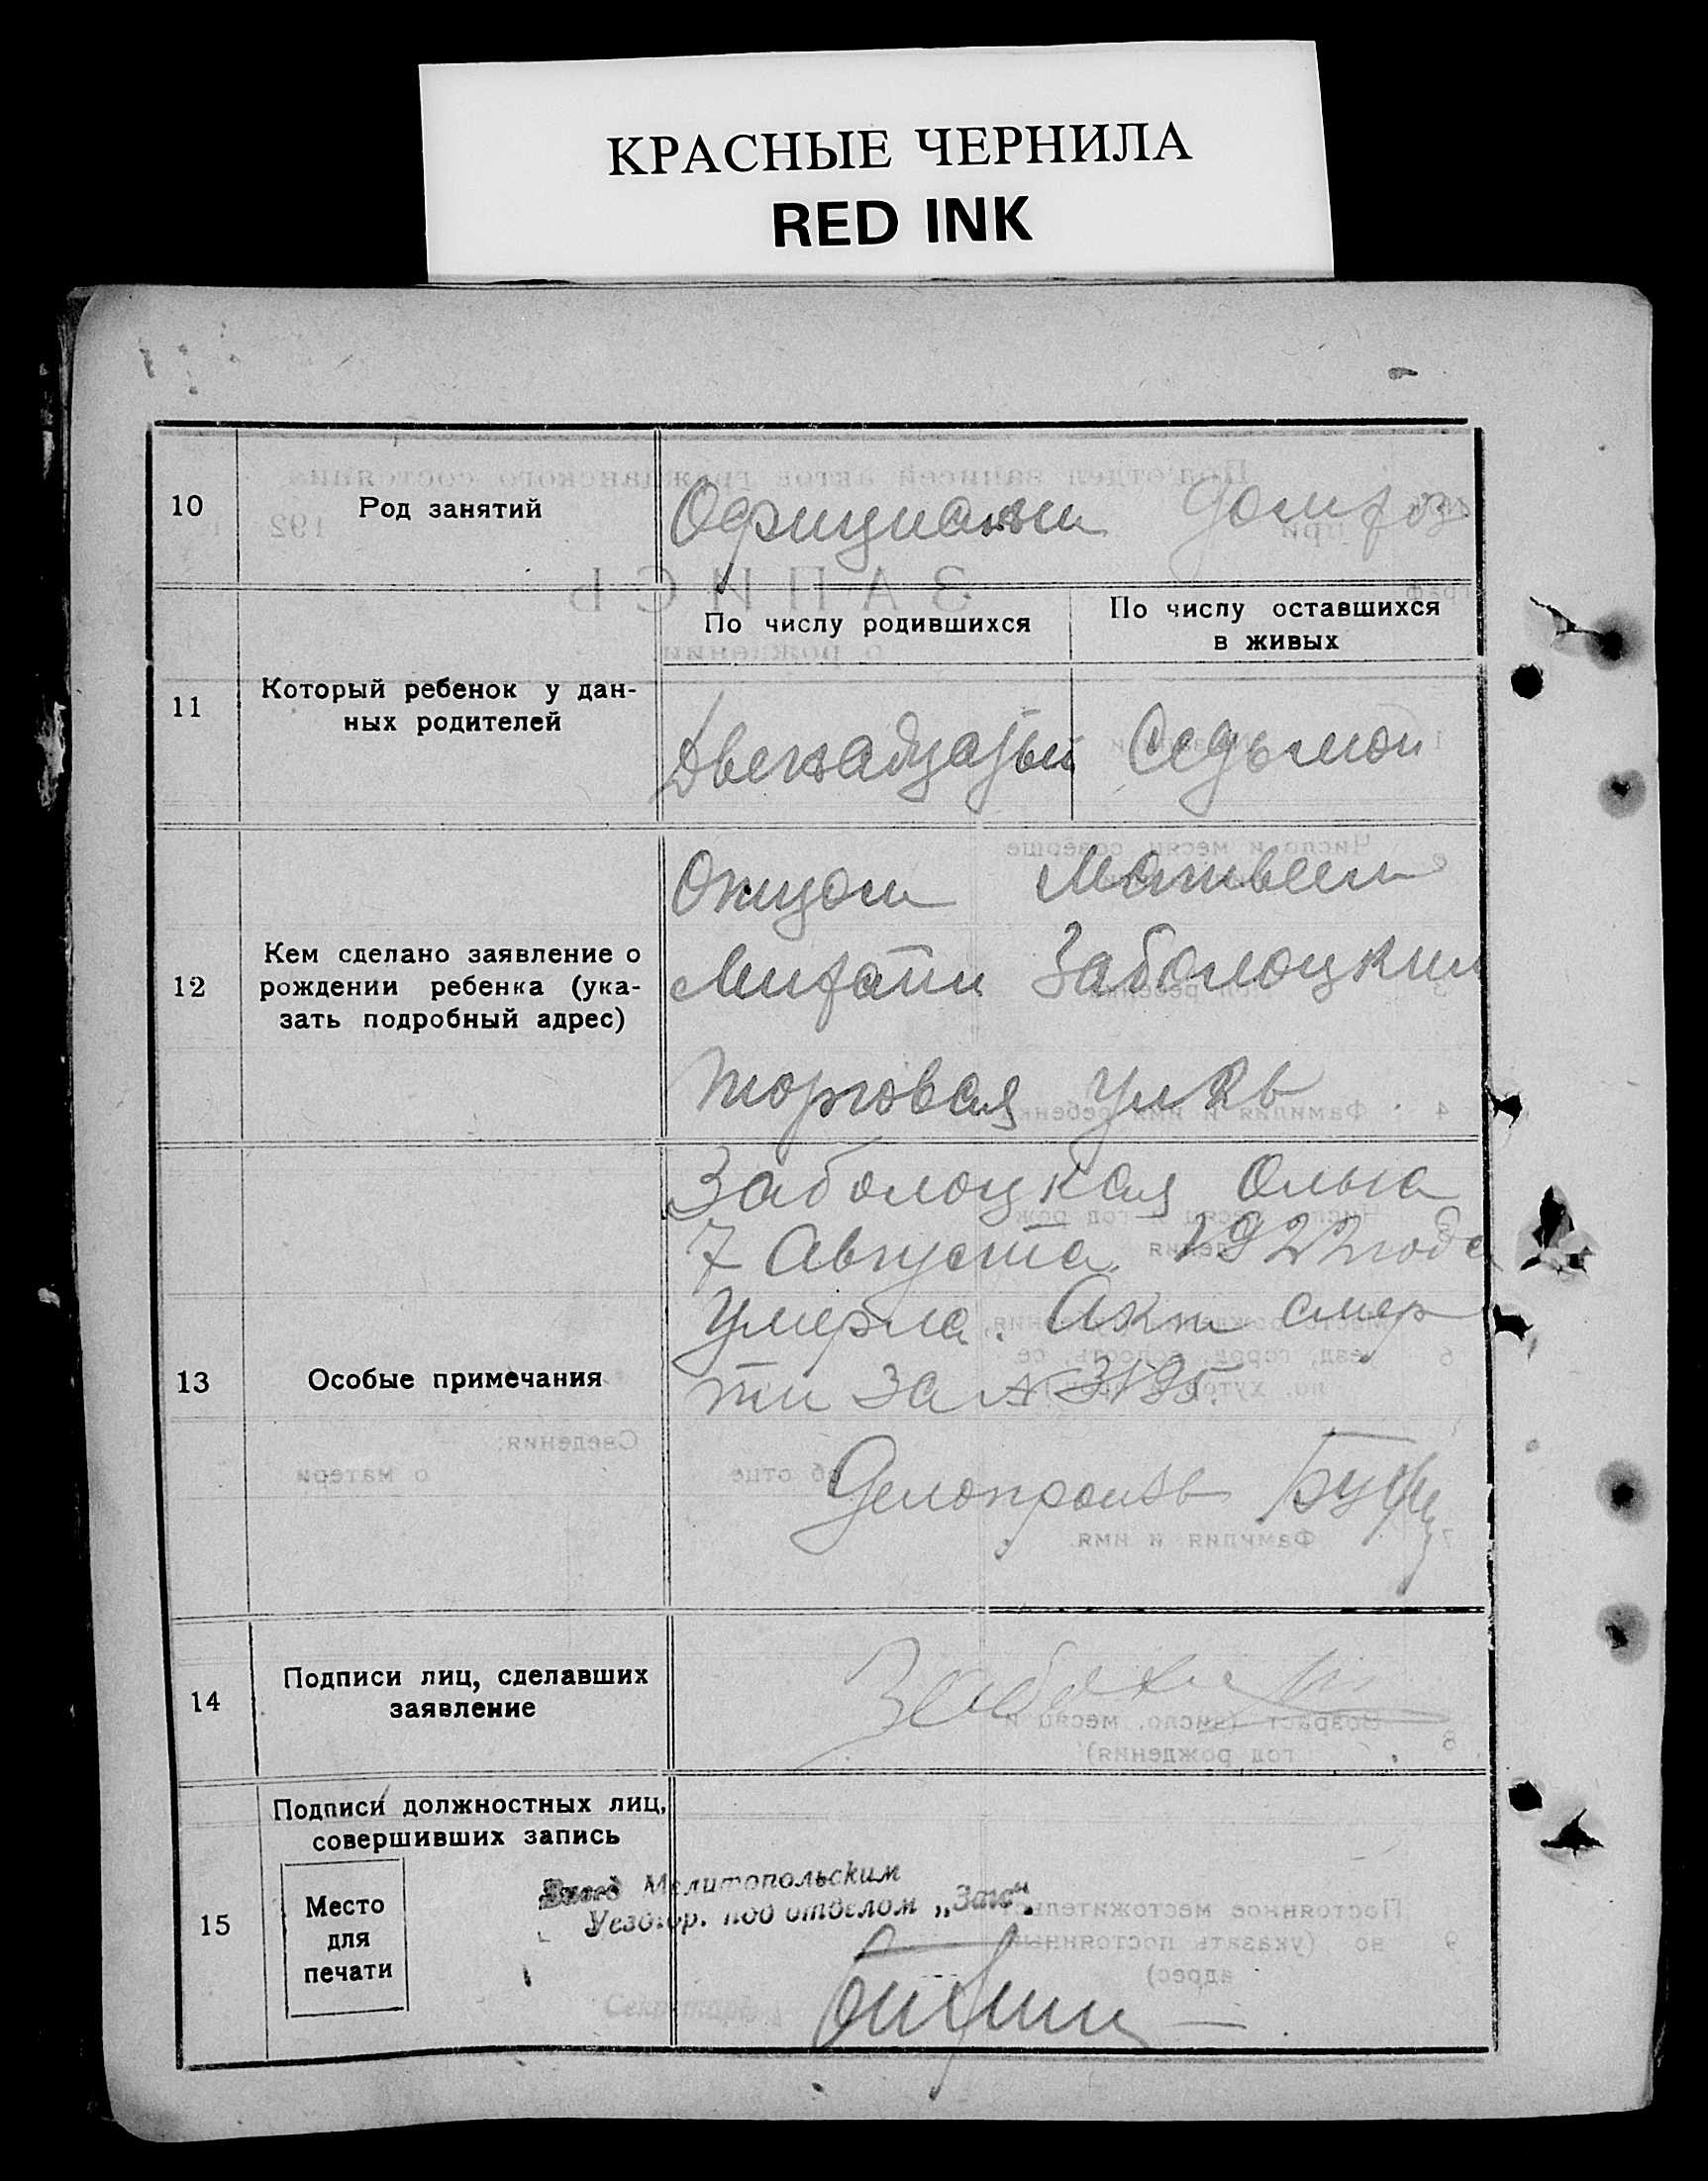 КРАСНЫЕ ЧЕРНИЛА
RED INK
10
Род занятий
Официант
домхоз
11
Который ребенок у дан-
ных родителей
По числу родившихся
По числу оставшихся
в живых
Двенадцатый
Седьмой
12
Кем сделано заявление о
рождении ребенка (ука-
зать подробный адрес)
Отцом Матвеем
Заболоцким
Торговая ул
13
Особые примечания
Заболоцкая Ольга
7 Августа 1922 года
Умерла. Акт смер
ти за №
Делопроизв
14
Подписи лиц, сделавших
заявление
15
Подписи должностных лиц,
совершивших запись
Место
для
печати
Мелитопольским
Уездгор. подотделом „Загс“.